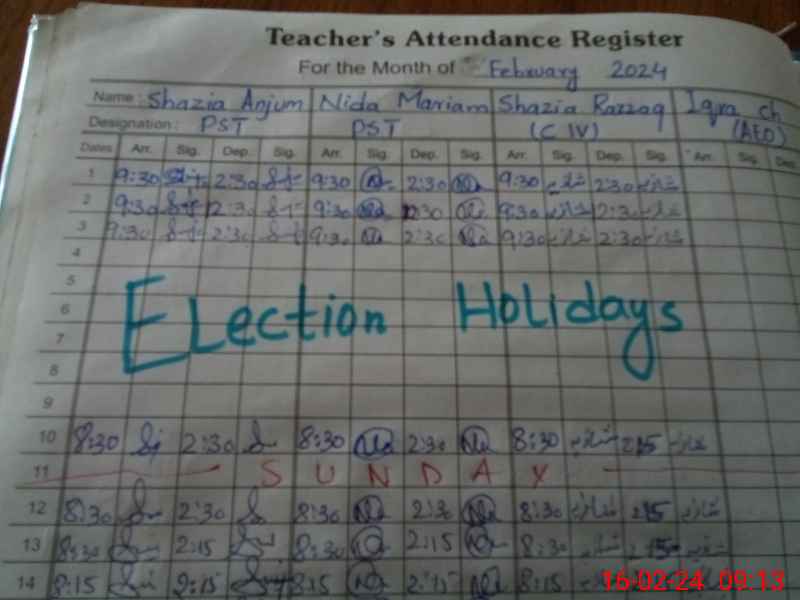 Teacher's Attendance Register
For the Month of February 2024
Name: Shazia Anjum Nida Mariam Shazia Razzaq Iqra ch
Designation: PST PST (C IV) (AEO)
Dates Arr. Sig. Dep. Sig. Arr. Sig. Dep. Sig. Arr. Sig. Dep. Sig. Arr. Sig. Dep.
1 9:30 2:30 9:30 2:30 9:30 2:30
2 9:30 2:30 9:30 2:30 9:30 2:30
3 9:30 2:30 9:30 2:30 9:30 2:30
4
5
6 Election Holidays
7
8
9
10 8:30 2:30 8:30 2:30 8:30 2:15
11 SUNDAY
12 8:30 2:30 8:30 2:30 8:30 2:15
13 8:30 2:15 8:30 2:15 8:30 2:15
14 8:15 2:15 8:15 2:15 8:15
16-02-24 09:13